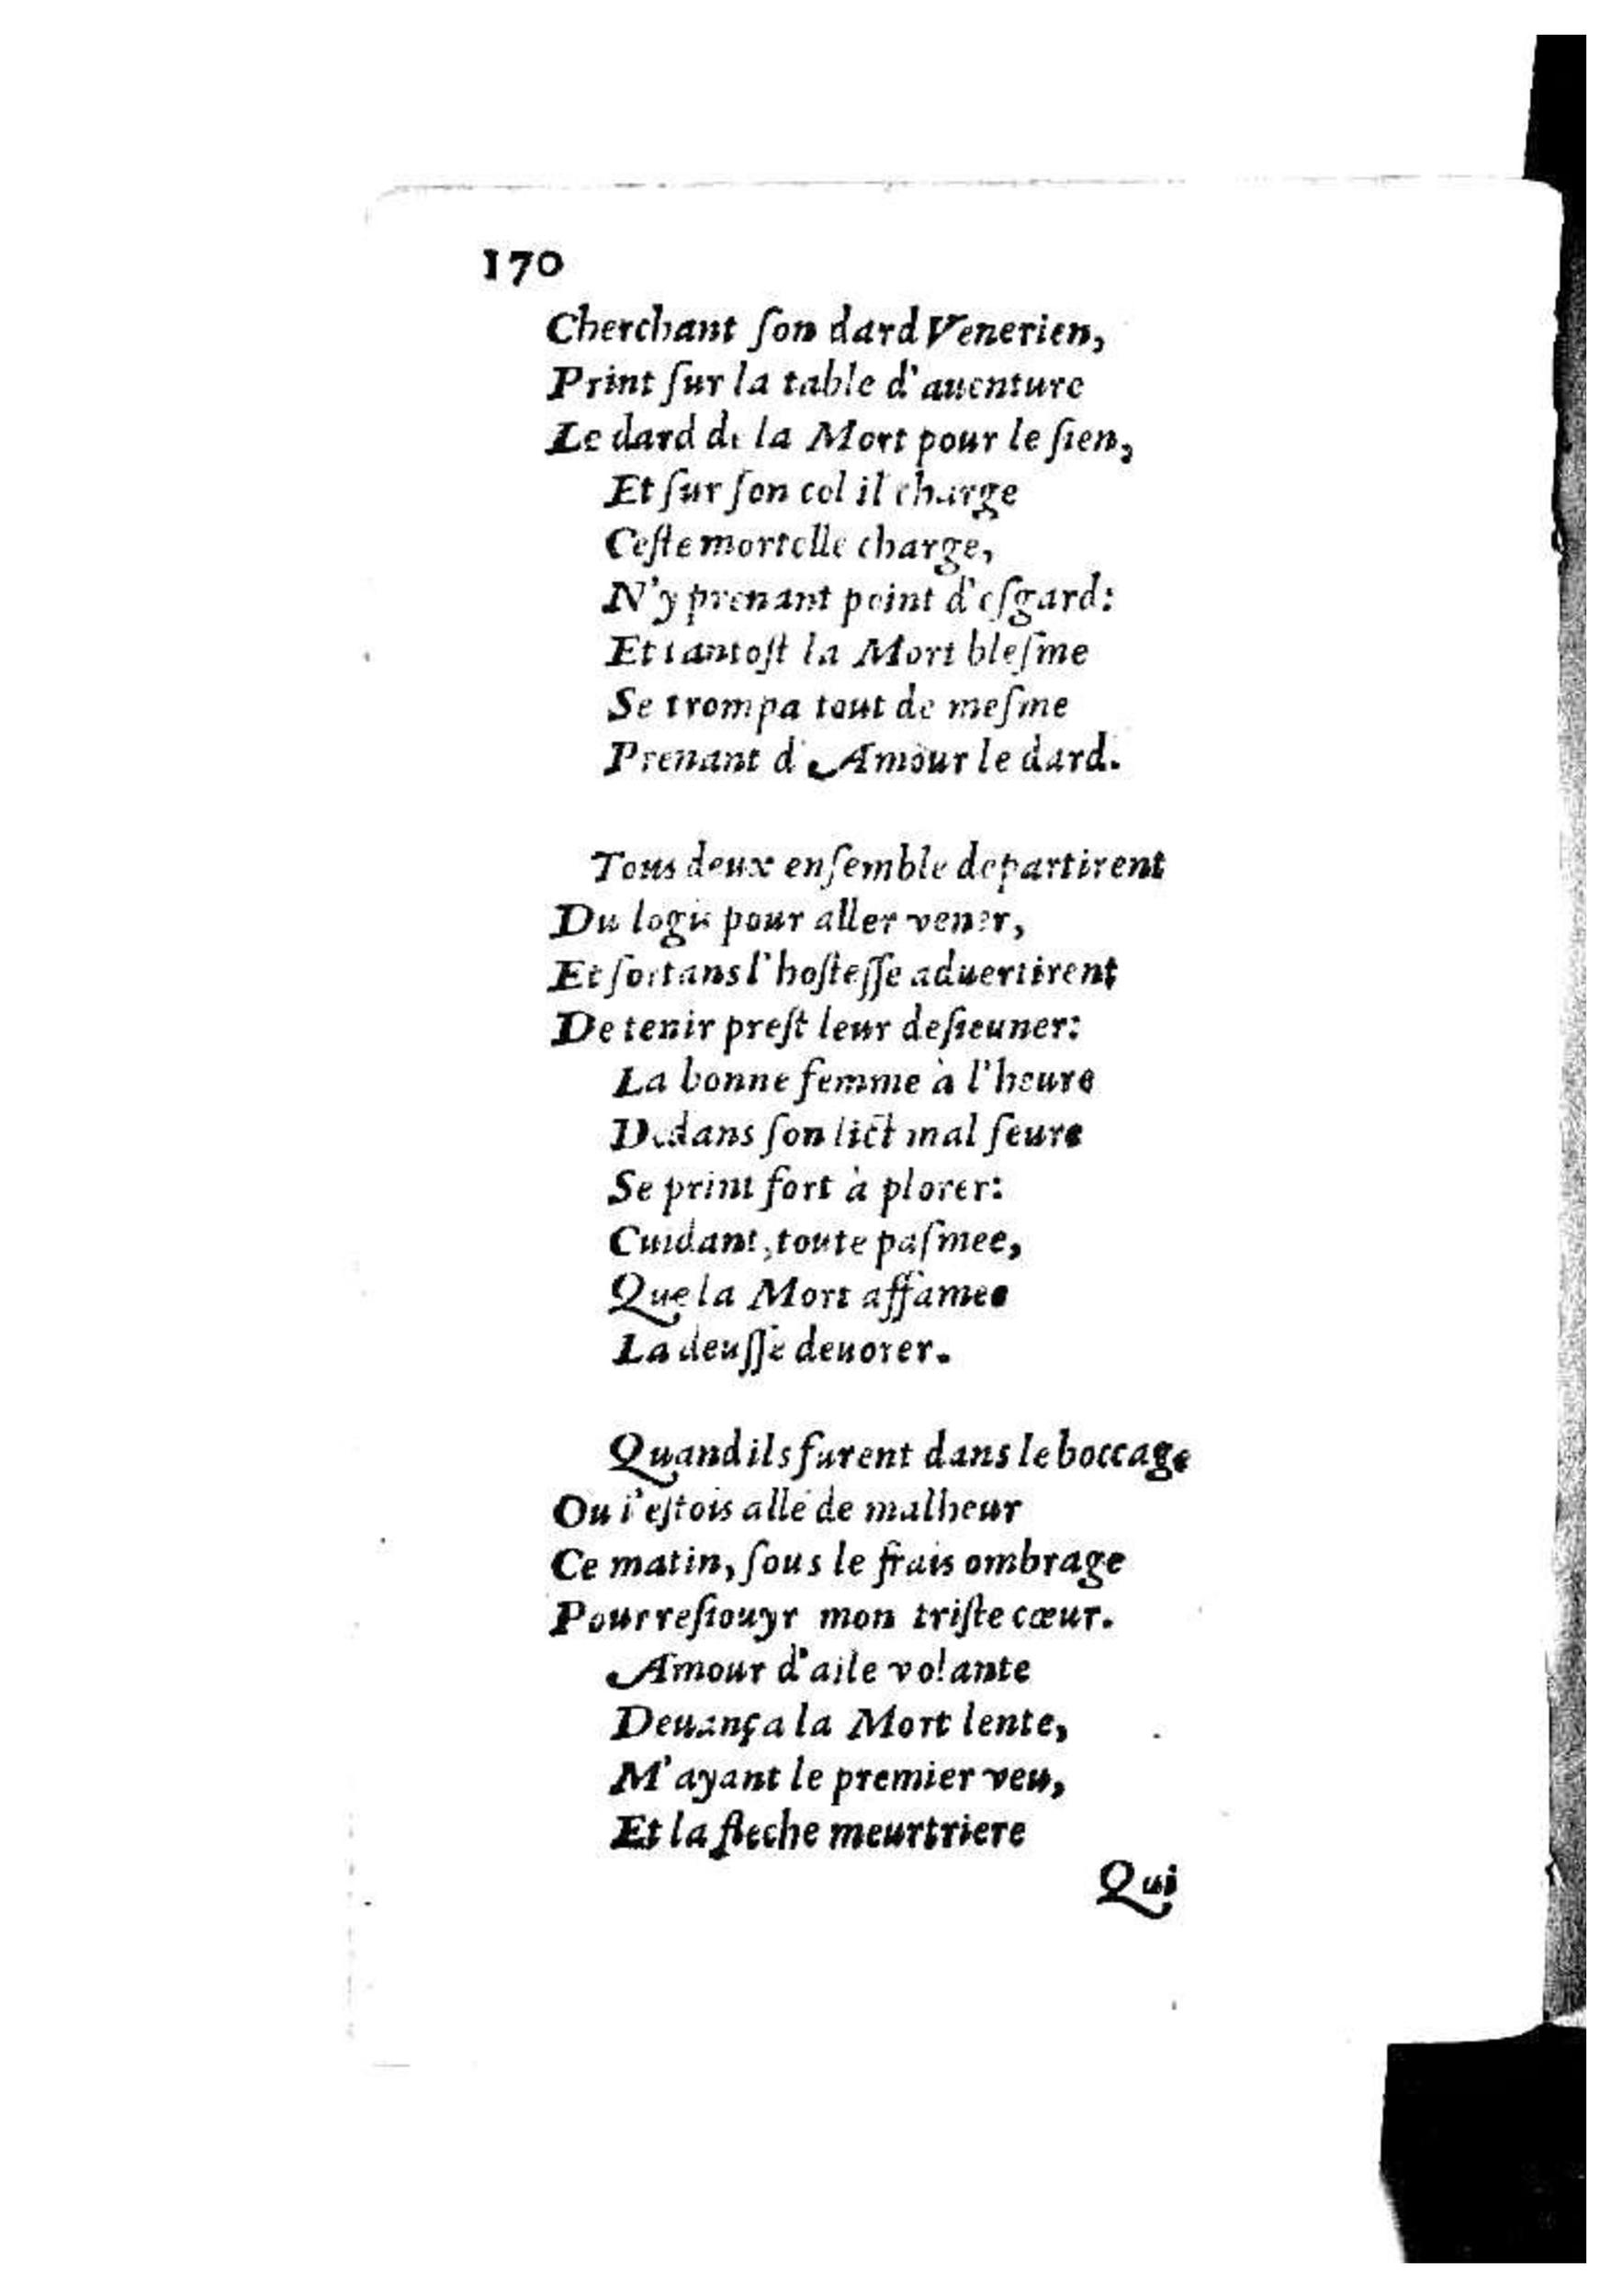 170
Cherchant ſon dard Venerien,
Print ſur la table d'auenture
Le dard de la Mort pour le ſien,
Et ſur ſon col il charge
Ceſte mortelle charge,
N'y prenant point d'eſgard:
Et tantoſt la Mort bleſme
Se trompa tout de meſme
Prenant d'Amour le dard.
Tous deux enſemble departirent
Du logis pour aller vener,
Et ſortans l'hoſteſſe aduertirent
De tenir preſt leur deſieuner:
La bonne femme à l'heure
Dedans ſon lict mal ſeure
Se print fort à plorer:
Cuidant, toute paſmee,
Que la Mort affamee
La deuſſe deuorer.
Quand ils furent dans le boccage
Ou i'eſtois allé de malheur
Ce matin, ſous le frais ombrage
Pour reſiouyr mon triſte cœur.
Amour d'aile volante
Deuança la Mort lente,
M'ayant le premier veu,
Et la fleche meurtriere
Qui